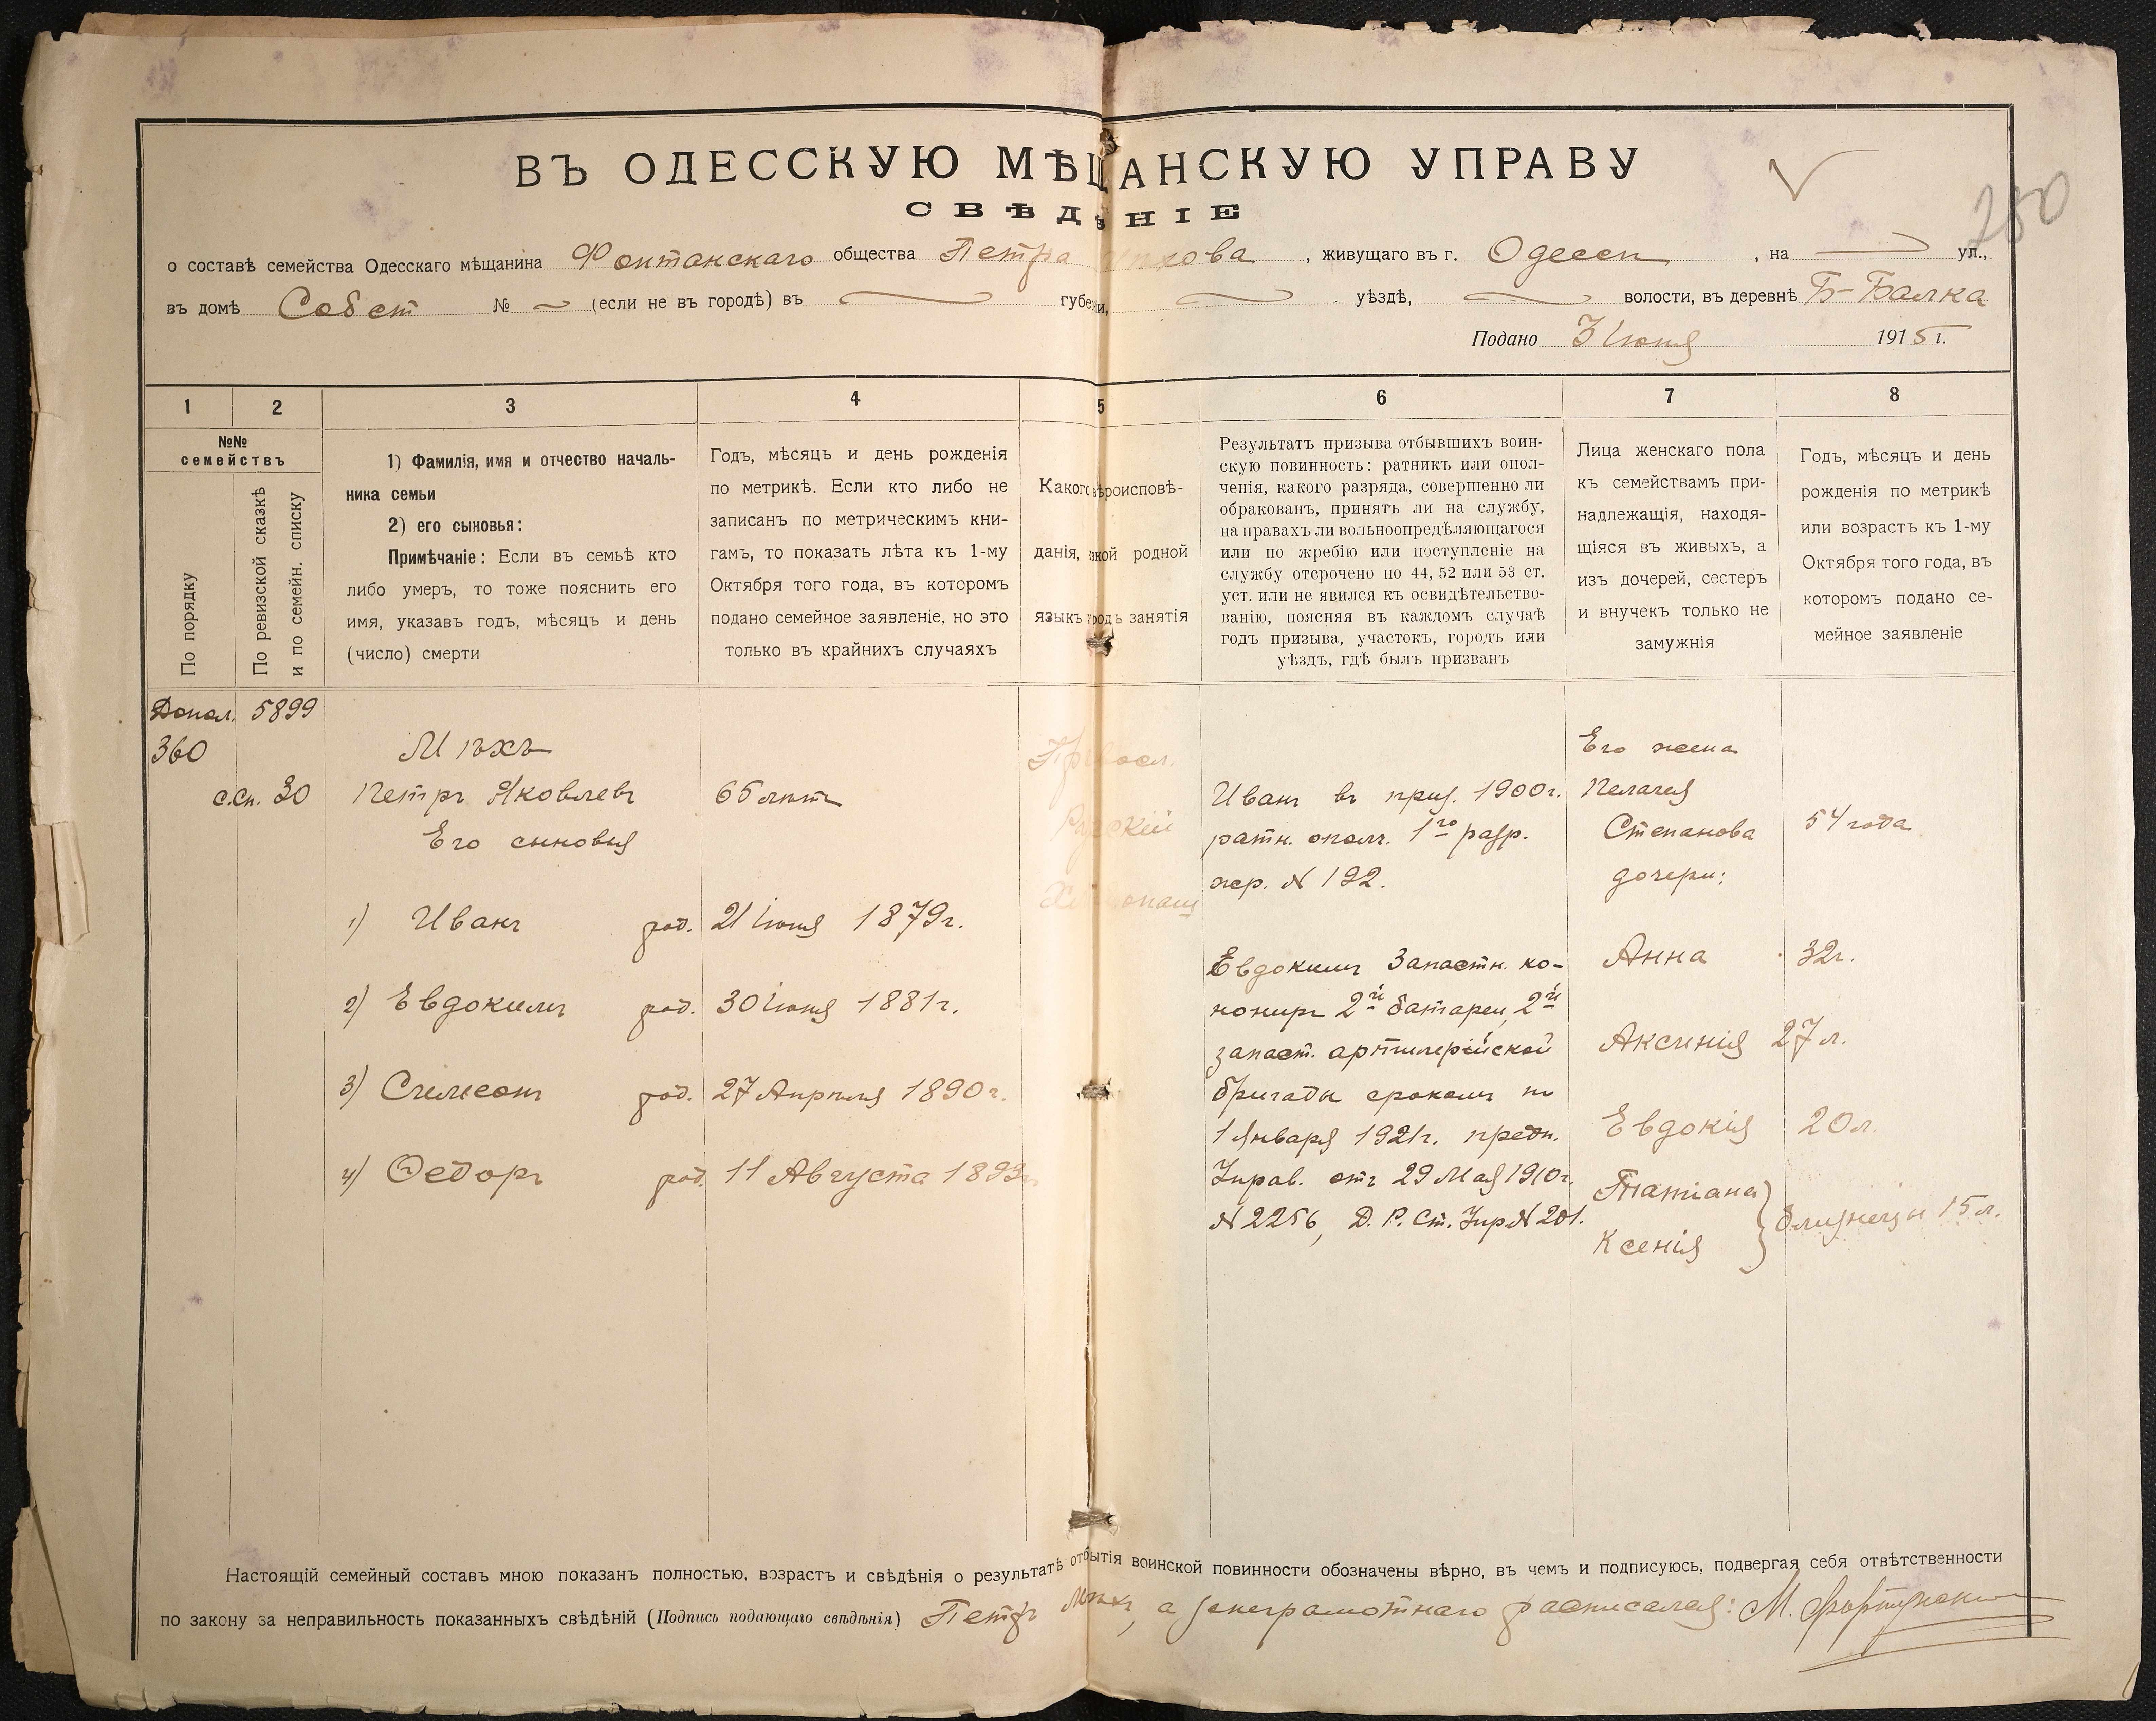 250
ВЪ ОДЕССКУЮ МѢЩАНСКУЮ УПРАВУ
СВѢДѢНІЕ
о составѣ семейства Одесскаго мѣщанина Фонтанскаго общества Петра Мѣхова, живущаго въ г. Одессѣ, на — ул.,
въ домѣ Собст № — (если не въ городѣ) въ — губерніи, — уѣздѣ, — волости, въ деревнѣ Б-Балка
Подано 3 Іюня 1915 г.
1 2 3 4 5 6 7 8
№№ семействъ
По порядку
По ревизской сказкѣ
и по семейн. списку
1) Фамилія, имя и отчество началь-
ника семьи
2) его сыновья:
Примѣчаніе: Если въ семьѣ кто
либо умеръ, то тоже пояснить его
имя, указавъ годъ, мѣсяцъ и день
(число) смерти
Годъ, мѣсяцъ и день рожденія
по метрикѣ. Если кто либо не
записанъ по метрическимъ кни-
гамъ, то показать лѣта къ 1-му
Октября того года, въ которомъ
подано семейное заявленіе, но это
только въ крайнихъ случаяхъ
Какого вѣроисповѣ-
данія, какой родной
языкъ и родъ занятія
Результатъ призыва отбывшихъ воин-
скую повинность: ратникъ или опол-
ченія, какого разряда, совершенно ли
обракованъ, принятъ ли на службу,
на правахъ ли вольноопредѣляющагося
или по жребію или поступленіе на
службу отсрочено по 44, 52 или 53 ст.
уст. или не явился къ освидѣтельство-
ванію, поясняя въ каждомъ случаѣ
годъ призыва, участокъ, городъ или
уѣздъ, гдѣ былъ призванъ
Лица женскаго пола
къ семействамъ при-
надлежащія, находя-
щіяся въ живыхъ, а
изъ дочерей, сестеръ
и внучекъ только не
замужнія
Годъ, мѣсяцъ и день
рожденія по метрикѣ
или возрастъ къ 1-му
Октября того года, въ
которомъ подано се-
мейное заявленіе
Допол. 5899
360
с.сп. 30
Мѣхъ
Петръ Яковлевъ
Его сыновья
1) Иванъ род.
2) Евдокимъ род.
3) Симеонъ род.
4) Ѳедоръ род.
65 лѣтъ
21 Іюня 1879 г.
30 Іюня 1881 г.
27 Апрѣля 1890 г.
11 Августа 1893 г.
Правосл.
Русскій
Хлѣбопаш
Иванъ въ приз. 1900 г.
ратн. ополч. 1го разр.
жер. N 192.
Евдокимъ Запасн. ка-
нониръ 2й батареи, 2й
запасн. артилерійской
бригады срокомъ по
1 Января 1921 г. предп.
Управ. отъ 29 Мая 1910 г.
N 2256, Д. Р. Ст. Упр N 201.
Его жена
Пелагея
Степанова
дочери:
Анна
Аксинія
Евдокія
Татіана
Ксенія
54 года
32 г.
27 л.
20 л.
близнецы 15 л.
Настоящій семейный составъ мною показанъ полностью, возрастъ и свѣдѣнія о результатѣ отбытія воинской повинности обозначены вѣрно, въ чемъ и подписуюсь, подвергая себя отвѣтственности
по закону за неправильность показанныхъ свѣдѣній (Подпись подающаго свѣдѣнія) Петръ Мѣхъ, а за неграмотнаго расписался: М.